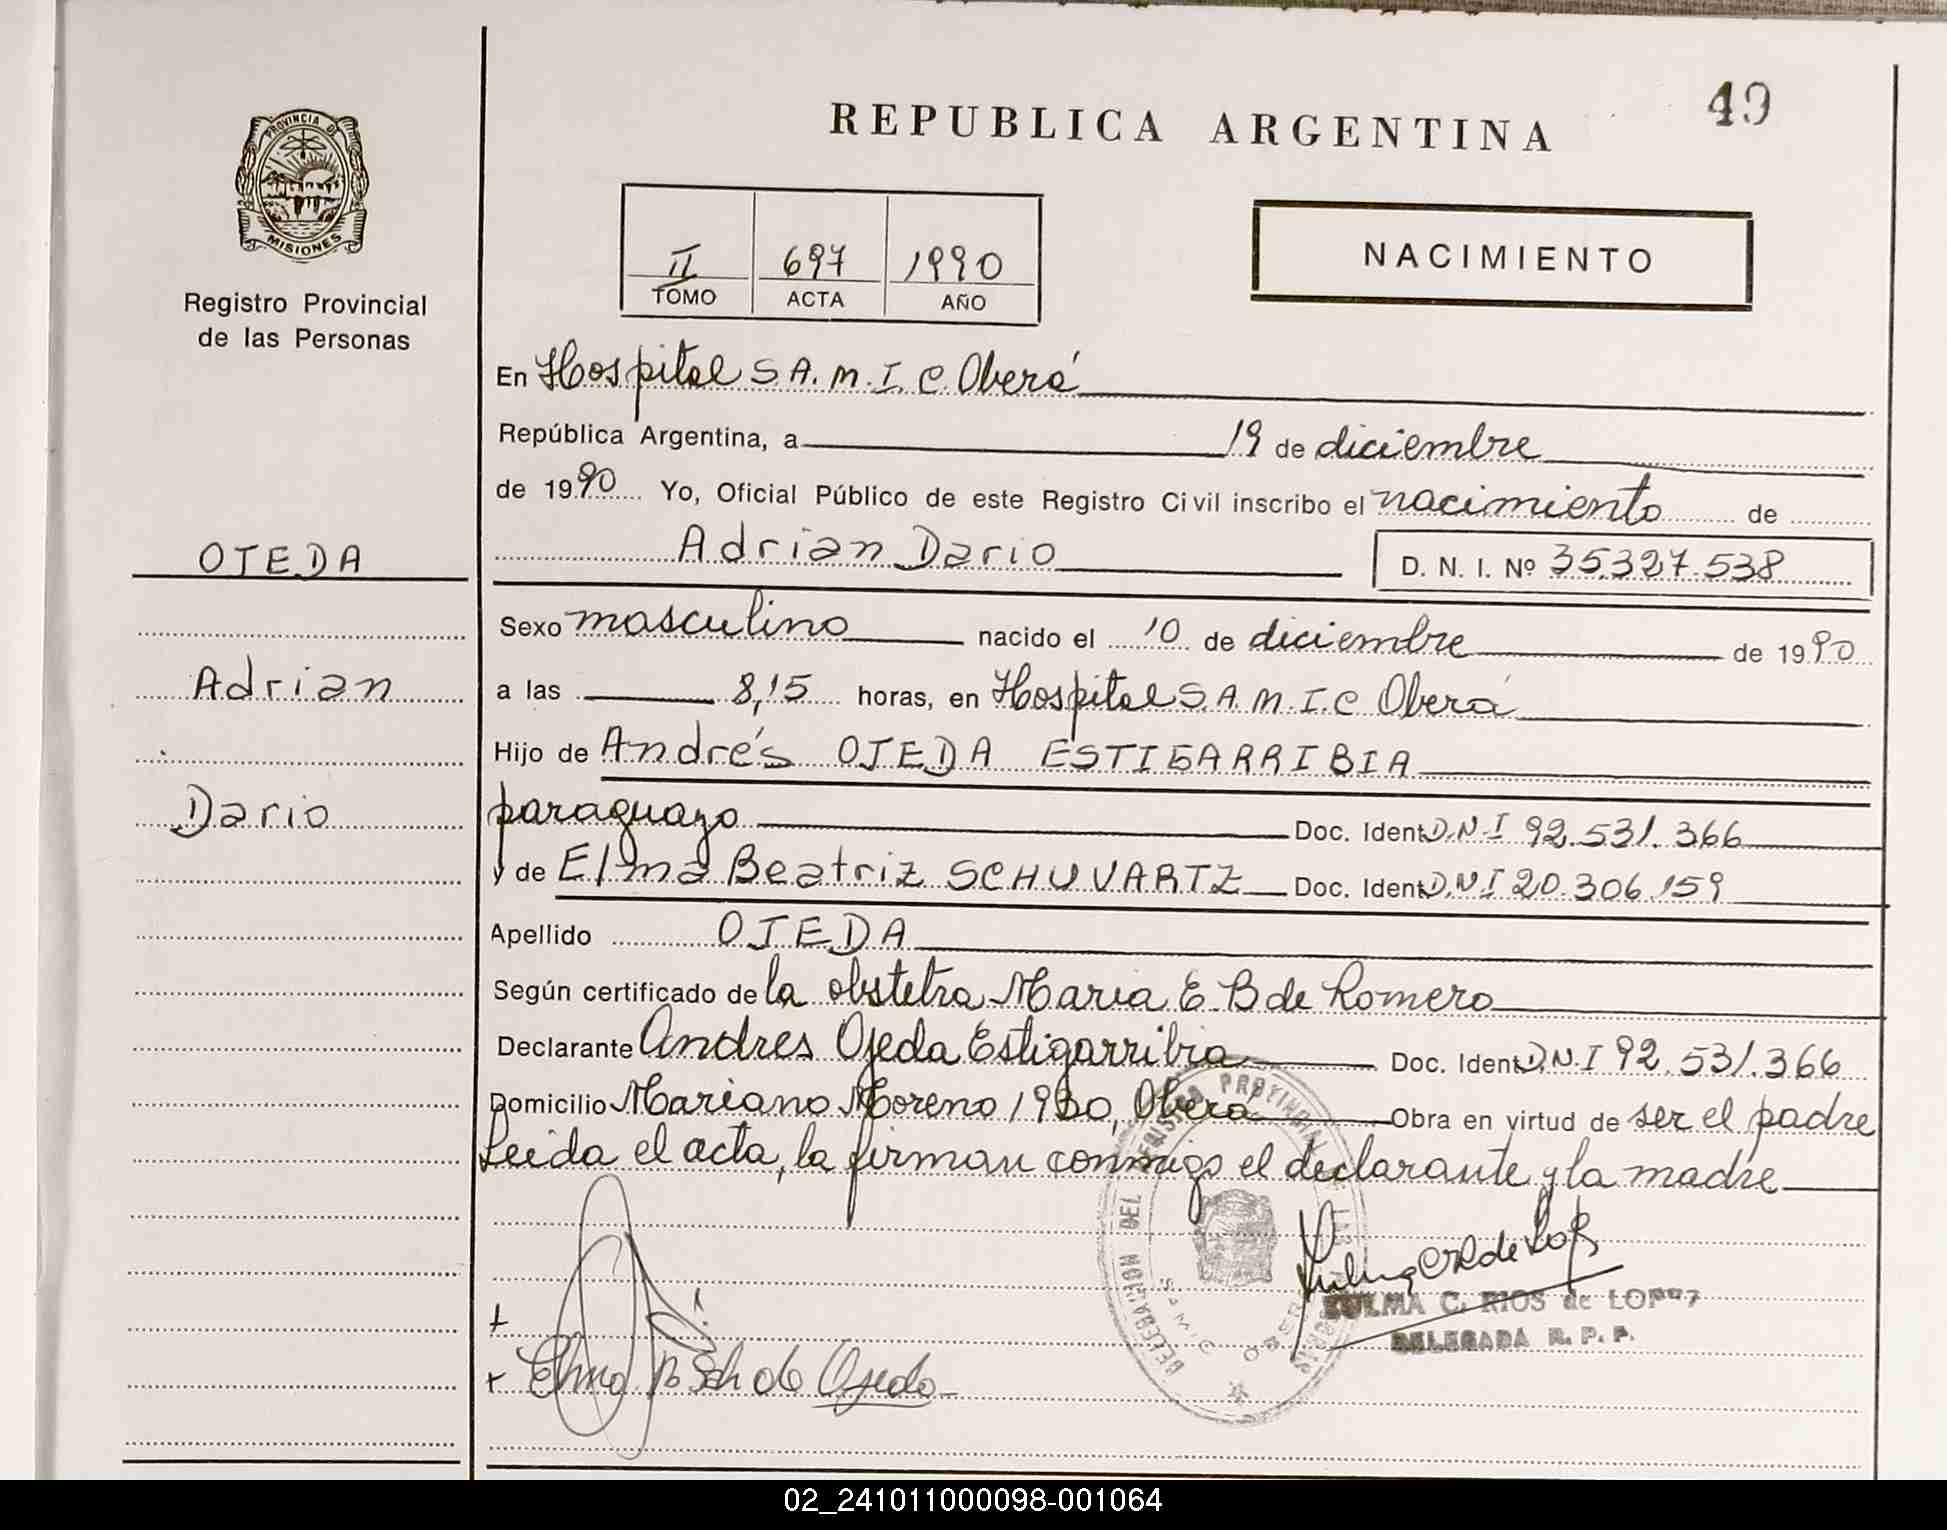 49
REPUBLICA ARGENTINA
PROVINCIA DE
MISIONES
Registro Provincial
de las Personas
II 697 1990
TOMO ACTA AÑO
NACIMIENTO
En Hospital S.A.M.I.C. Oberá
República Argentina, a 19 de diciembre
de 1990 Yo, Oficial Público de este Registro Civil inscribo el nacimiento de
OJEDA
Adrian Dario D. N. I. Nº 35.327.538
Sexo masculino nacido el 10 de diciembre de 1990
Adrian
a las 8,15 horas, en Hospital S.A.M.I.C Oberá
Hijo de Andrés OJEDA ESTIGARRIBIA
Dario
paraguayo Doc. Ident. D.N.I 92.531.366
y de Elma Beatriz SCHUVARTZ Doc. Ident. D.N.I 20.306.159
Apellido OJEDA
Según certificado de la obstetra Maria E. B de Romero
Declarante Andres Ojeda Estigarribia Doc. Ident. D.N.I 92.531.366
Domicilio Mariano Moreno 1920, Oberá Obra en virtud de ser el padre
Leida el acta, la firman conmigo el declarante y la madre
DELEGACION DEL REGISTRO PROVINCIAL DE LAS
ZULMA C. RIOS de LOPEZ
DELEGADA R. P. P.
Elma B Sch de Ojeda
02_241011000098-001064